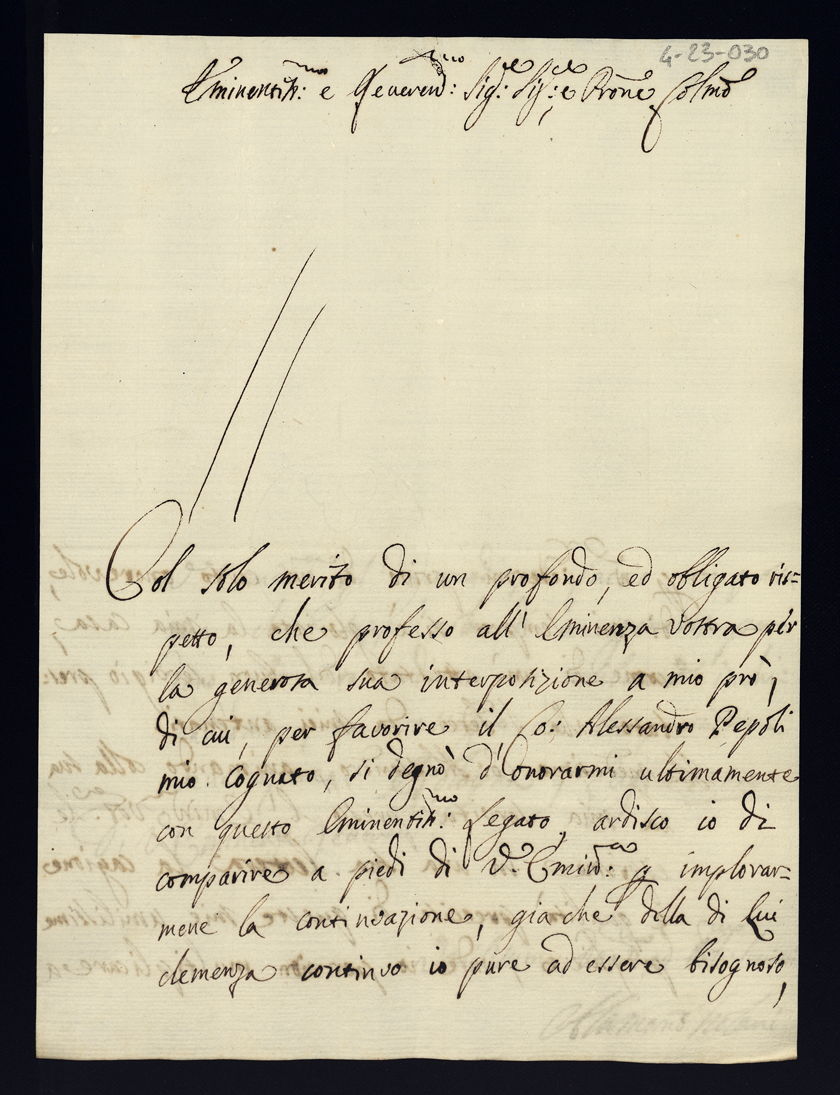 4-23-030
Eminentiss:mo e Reverend:mo Sig:re Sig:re e Prone Colmo
Col solo merito di un profondo, ed obligato ris=
petto, che professo all' Eminenza Vostra per
la generosa sua interposizione a mio prò,
di cui, per favorire il Co: Alessandro Pepoli
mio Cognato, si degnò d'Onorarmi ultimamente
con questo Eminentiss:mo Legato, ardisco io di
comparire a piedi di V.a Emin:za p implorar=
mene la continuazione, gia che della di Lui
clemenza continuo io pure ad essere bisognoso,